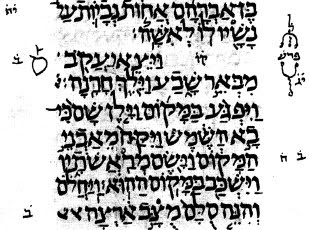 בן אברהם אחות נביות על
נשיו לו לאשה
ויצא יעקב
מבאר שבע וילך חרנה
ויפגע במקום וילן שם כי
בא השמש ויקח מאבני
המקום וישם מראשתיו
וישכב במקום ההוא ויחלם
והנה סלם מצב ארצה
פרש
ב
ב